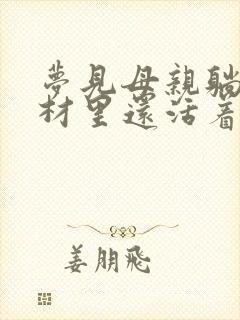 夢見母親躺
材里還活着
姜朋飛